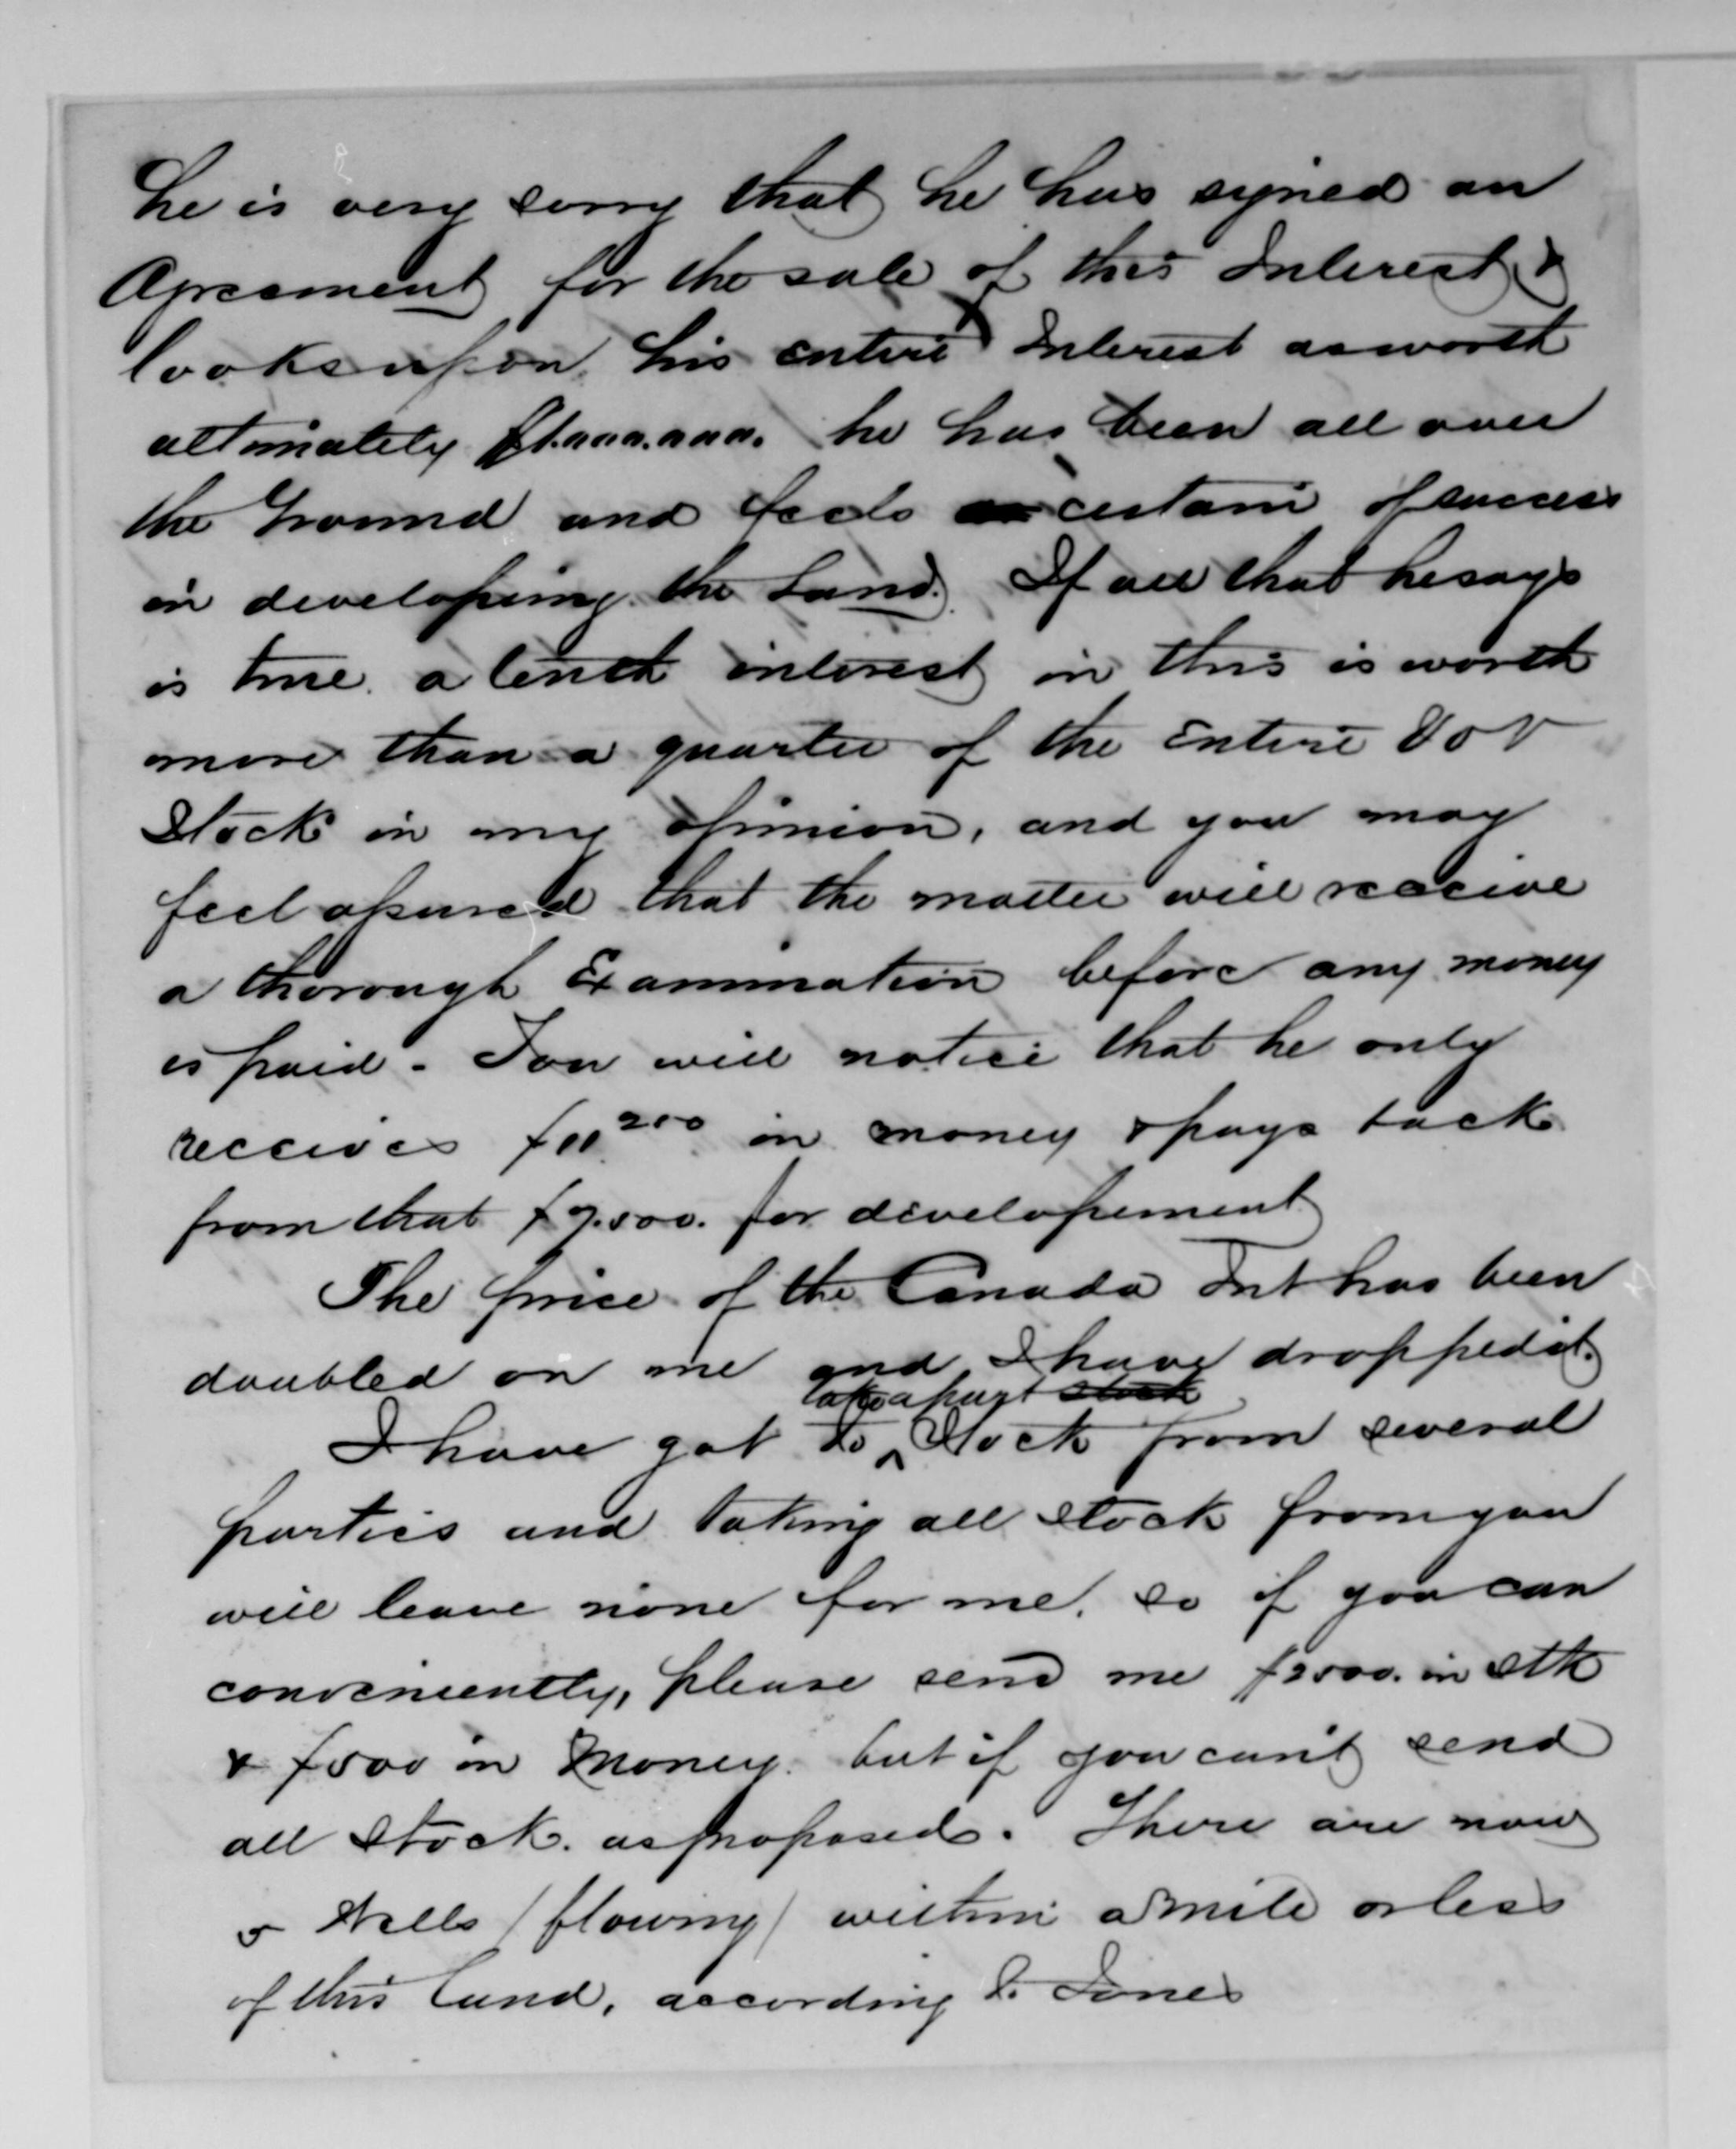 he is very sorry that he has signed an
Agreement for the sale of this Interest &
looks upon his entire Interest as worth
ultimately $1.000.000. he has been all over
the Ground and feels certain of success
in developing the Land. If all that he says
is true a tenth interest in this is worth
more than a quarter of the Entire
Stock in my opinion, and you may
feel assured that the matter will receive
a thorough Examination before any money
is paid - You will notice that he only
receives $11.200 in money & pays back
from that $7.500. for developement
The price of the Canada Int has been
doubled on me and I have dropped it.
take a part stock
I have got to Stock from several
parties and taking all stock from you
will leave none for me. so if you can
conveniently, please send me $2000. in Stk
& $500 in Money. but if you can't send
all Stock. as proposed. There are now
5 Wells (flowing) within a mile or less
of this Land, according to Jones